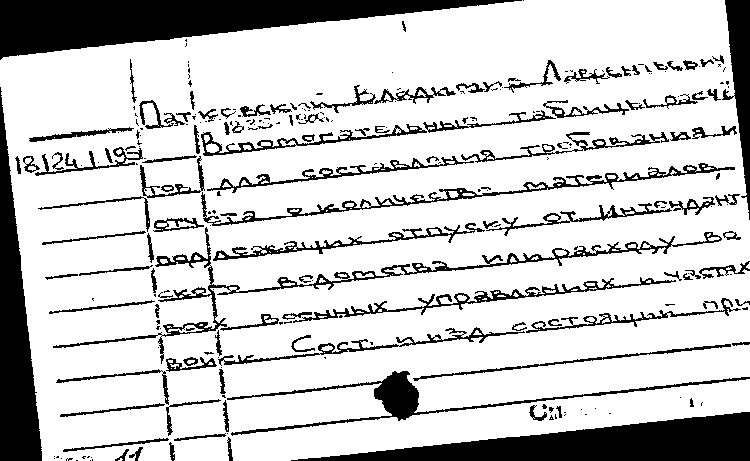 Патковский, Владимир Лаврентьевич
Вспомогательные таблицы расчё
18/24 | 195
тов для составления требования и
отчёта о количестве материалов,
подлежащих отпуску от Интендант-
ского ведомства или расходу во
всех военных управлениях и частях
войск. Сост. и изд. состоящий при
См.
11